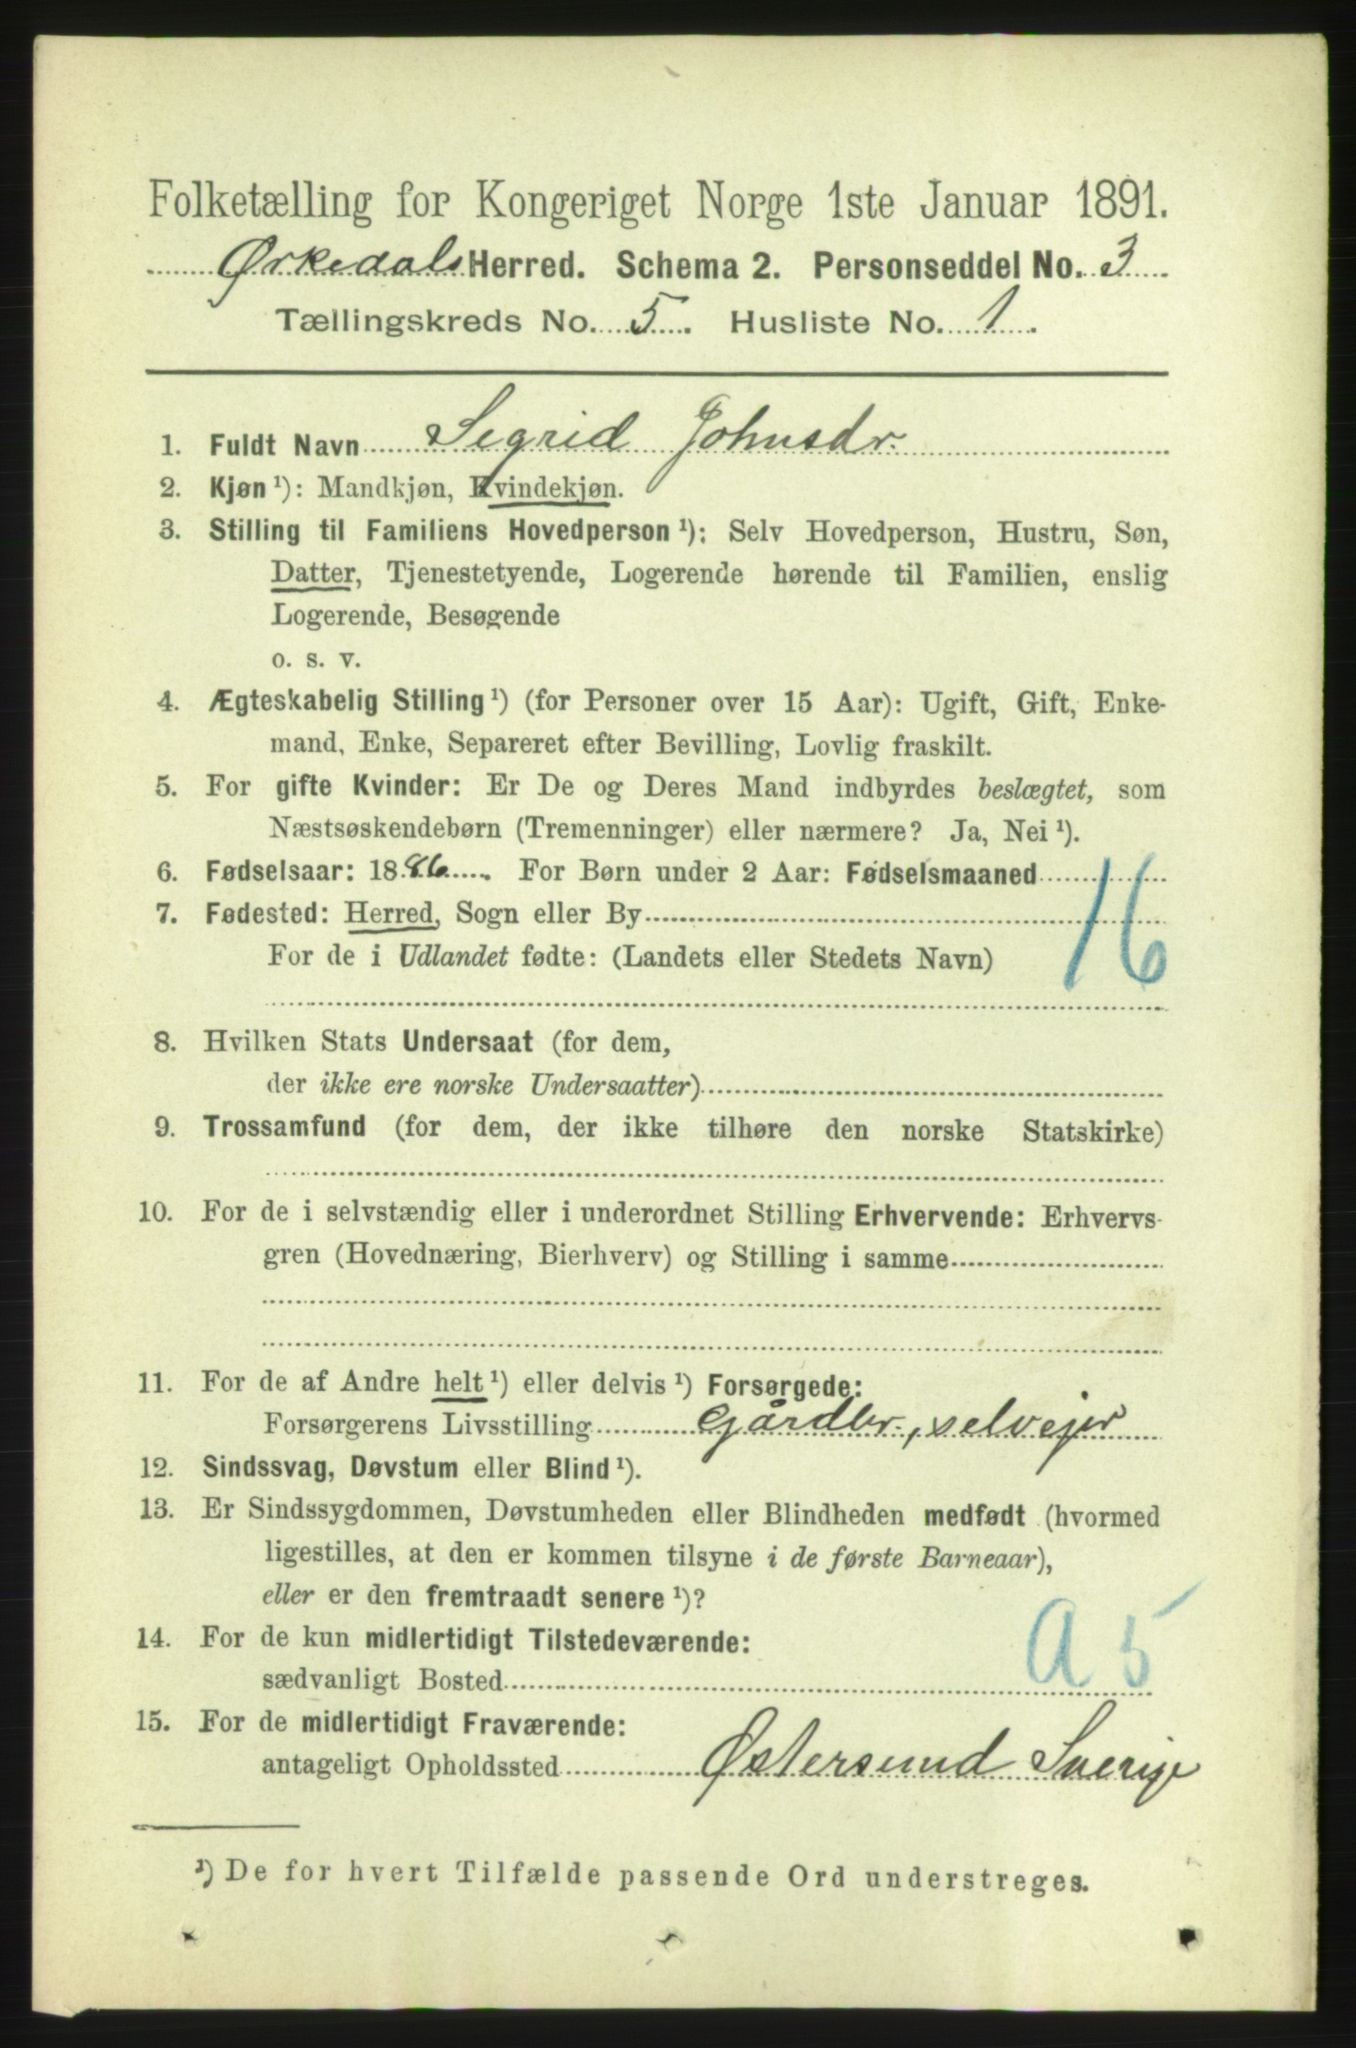 Folketælling for Kongeriget Norge 1ste Januar 1891.
Ørkedals Herred. Schema 2. Personseddel No. 3
Tællingskreds No. 5. Husliste No. 1.
1. Fuldt Navn Sigrid Johnsdr.
2. Kjøn ¹): Mandkjøn, Kvindekjøn.
3. Stilling til Familiens Hovedperson ¹): Selv Hovedperson, Hustru, Søn,
Datter, Tjenestetyende, Logerende hørende til Familien, enslig
Logerende, Besøgende
o. s. v.
4. Ægteskabelig Stilling ¹) (for Personer over 15 Aar): Ugift, Gift, Enke-
mand, Enke, Separeret efter Bevilling, Lovlig fraskilt.
5. For gifte Kvinder: Er De og Deres Mand indbyrdes beslægtet, som
Næstsøskendebørn (Tremenninger) eller nærmere? Ja, Nei ¹).
6. Fødselsaar: 1886. For Børn under 2 Aar: Fødselsmaaned
7. Fødested: Herred, Sogn eller By
16
For de i Udlandet fødte: (Landets eller Stedets Navn)
8. Hvilken Stats Undersaat (for dem,
der ikke ere norske Undersaatter)
9. Trossamfund (for dem, der ikke tilhøre den norske Statskirke)
10. For de i selvstændig eller i underordnet Stilling Erhvervende: Erhvervs-
gren (Hovednæring, Bierhverv) og Stilling i samme
11. For de af Andre helt ¹) eller delvis ¹) Forsørgede:
Forsørgerens Livsstilling Gårdbr., selvejer
12. Sindssvag, Døvstum eller Blind ¹).
13. Er Sindssygdommen, Døvstumheden eller Blindheden medfødt (hvormed
ligestilles, at den er kommen tilsyne i de første Barneaar),
eller er den fremtraadt senere ¹)?
14. For de kun midlertidigt Tilstedeværende:
A 5
sædvanligt Bosted
15. For de midlertidigt Fraværende:
antageligt Opholdssted Østersund Sverige
¹) De for hvert Tilfælde passende Ord understreges.